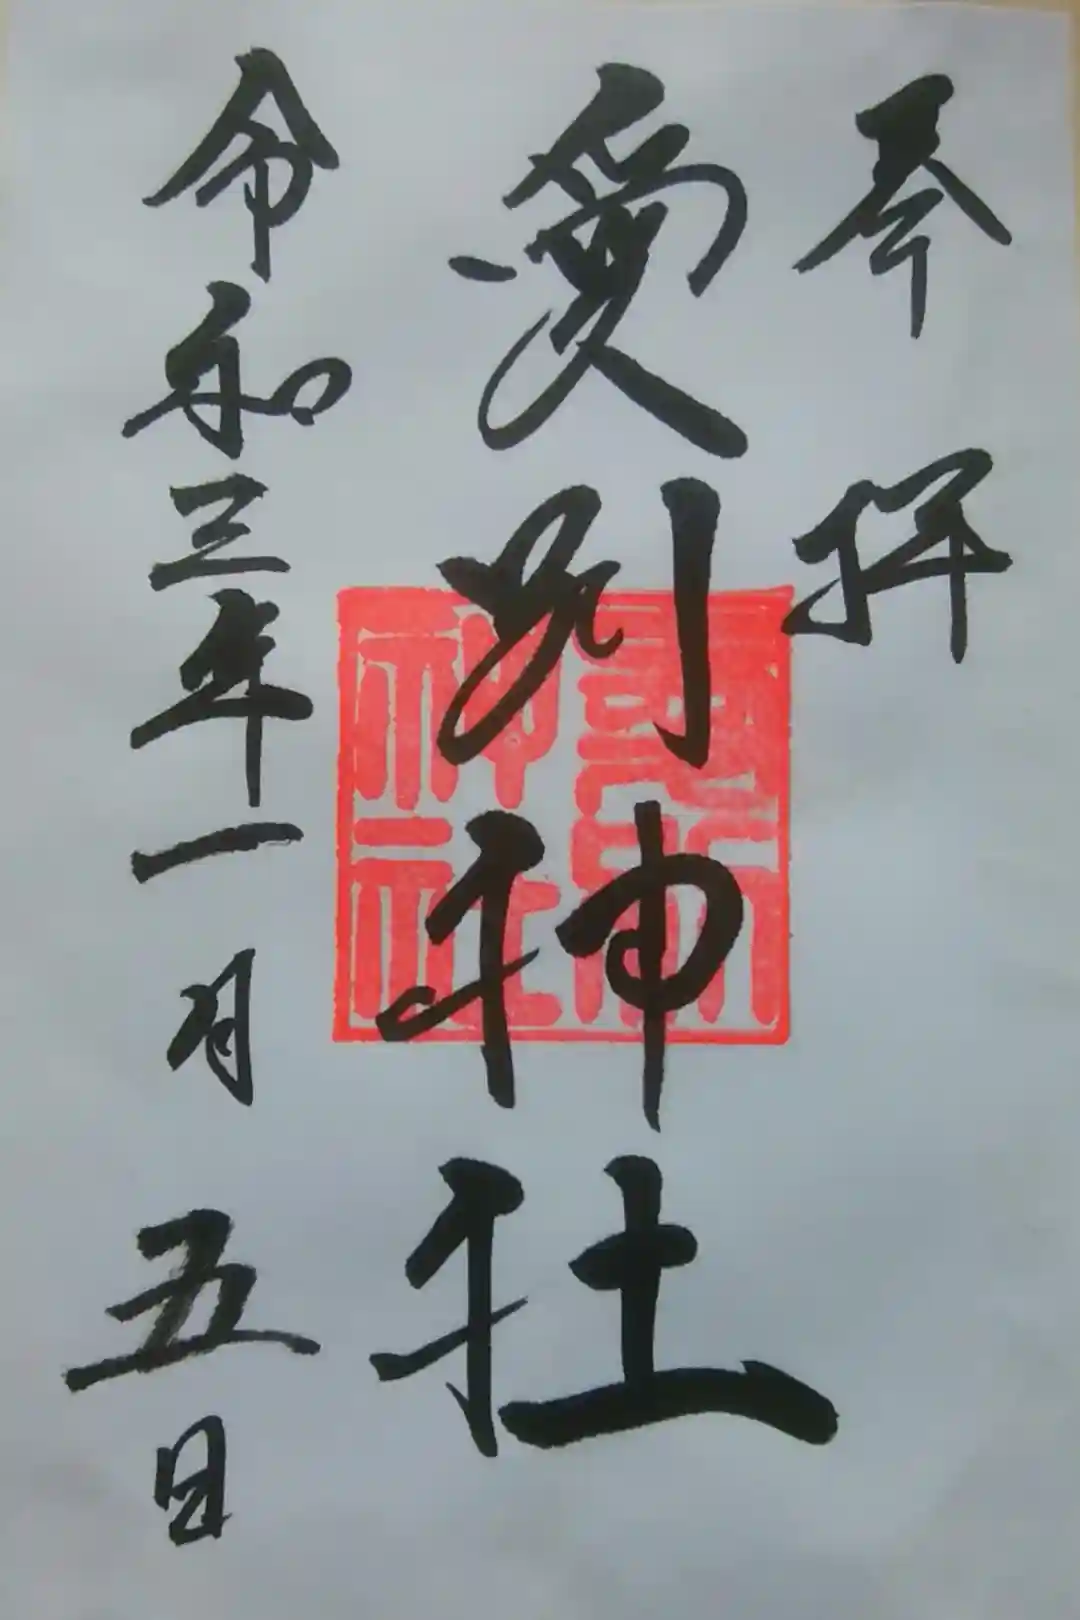 奉拝
愛別神社
令和三年一月五日
愛別
神社